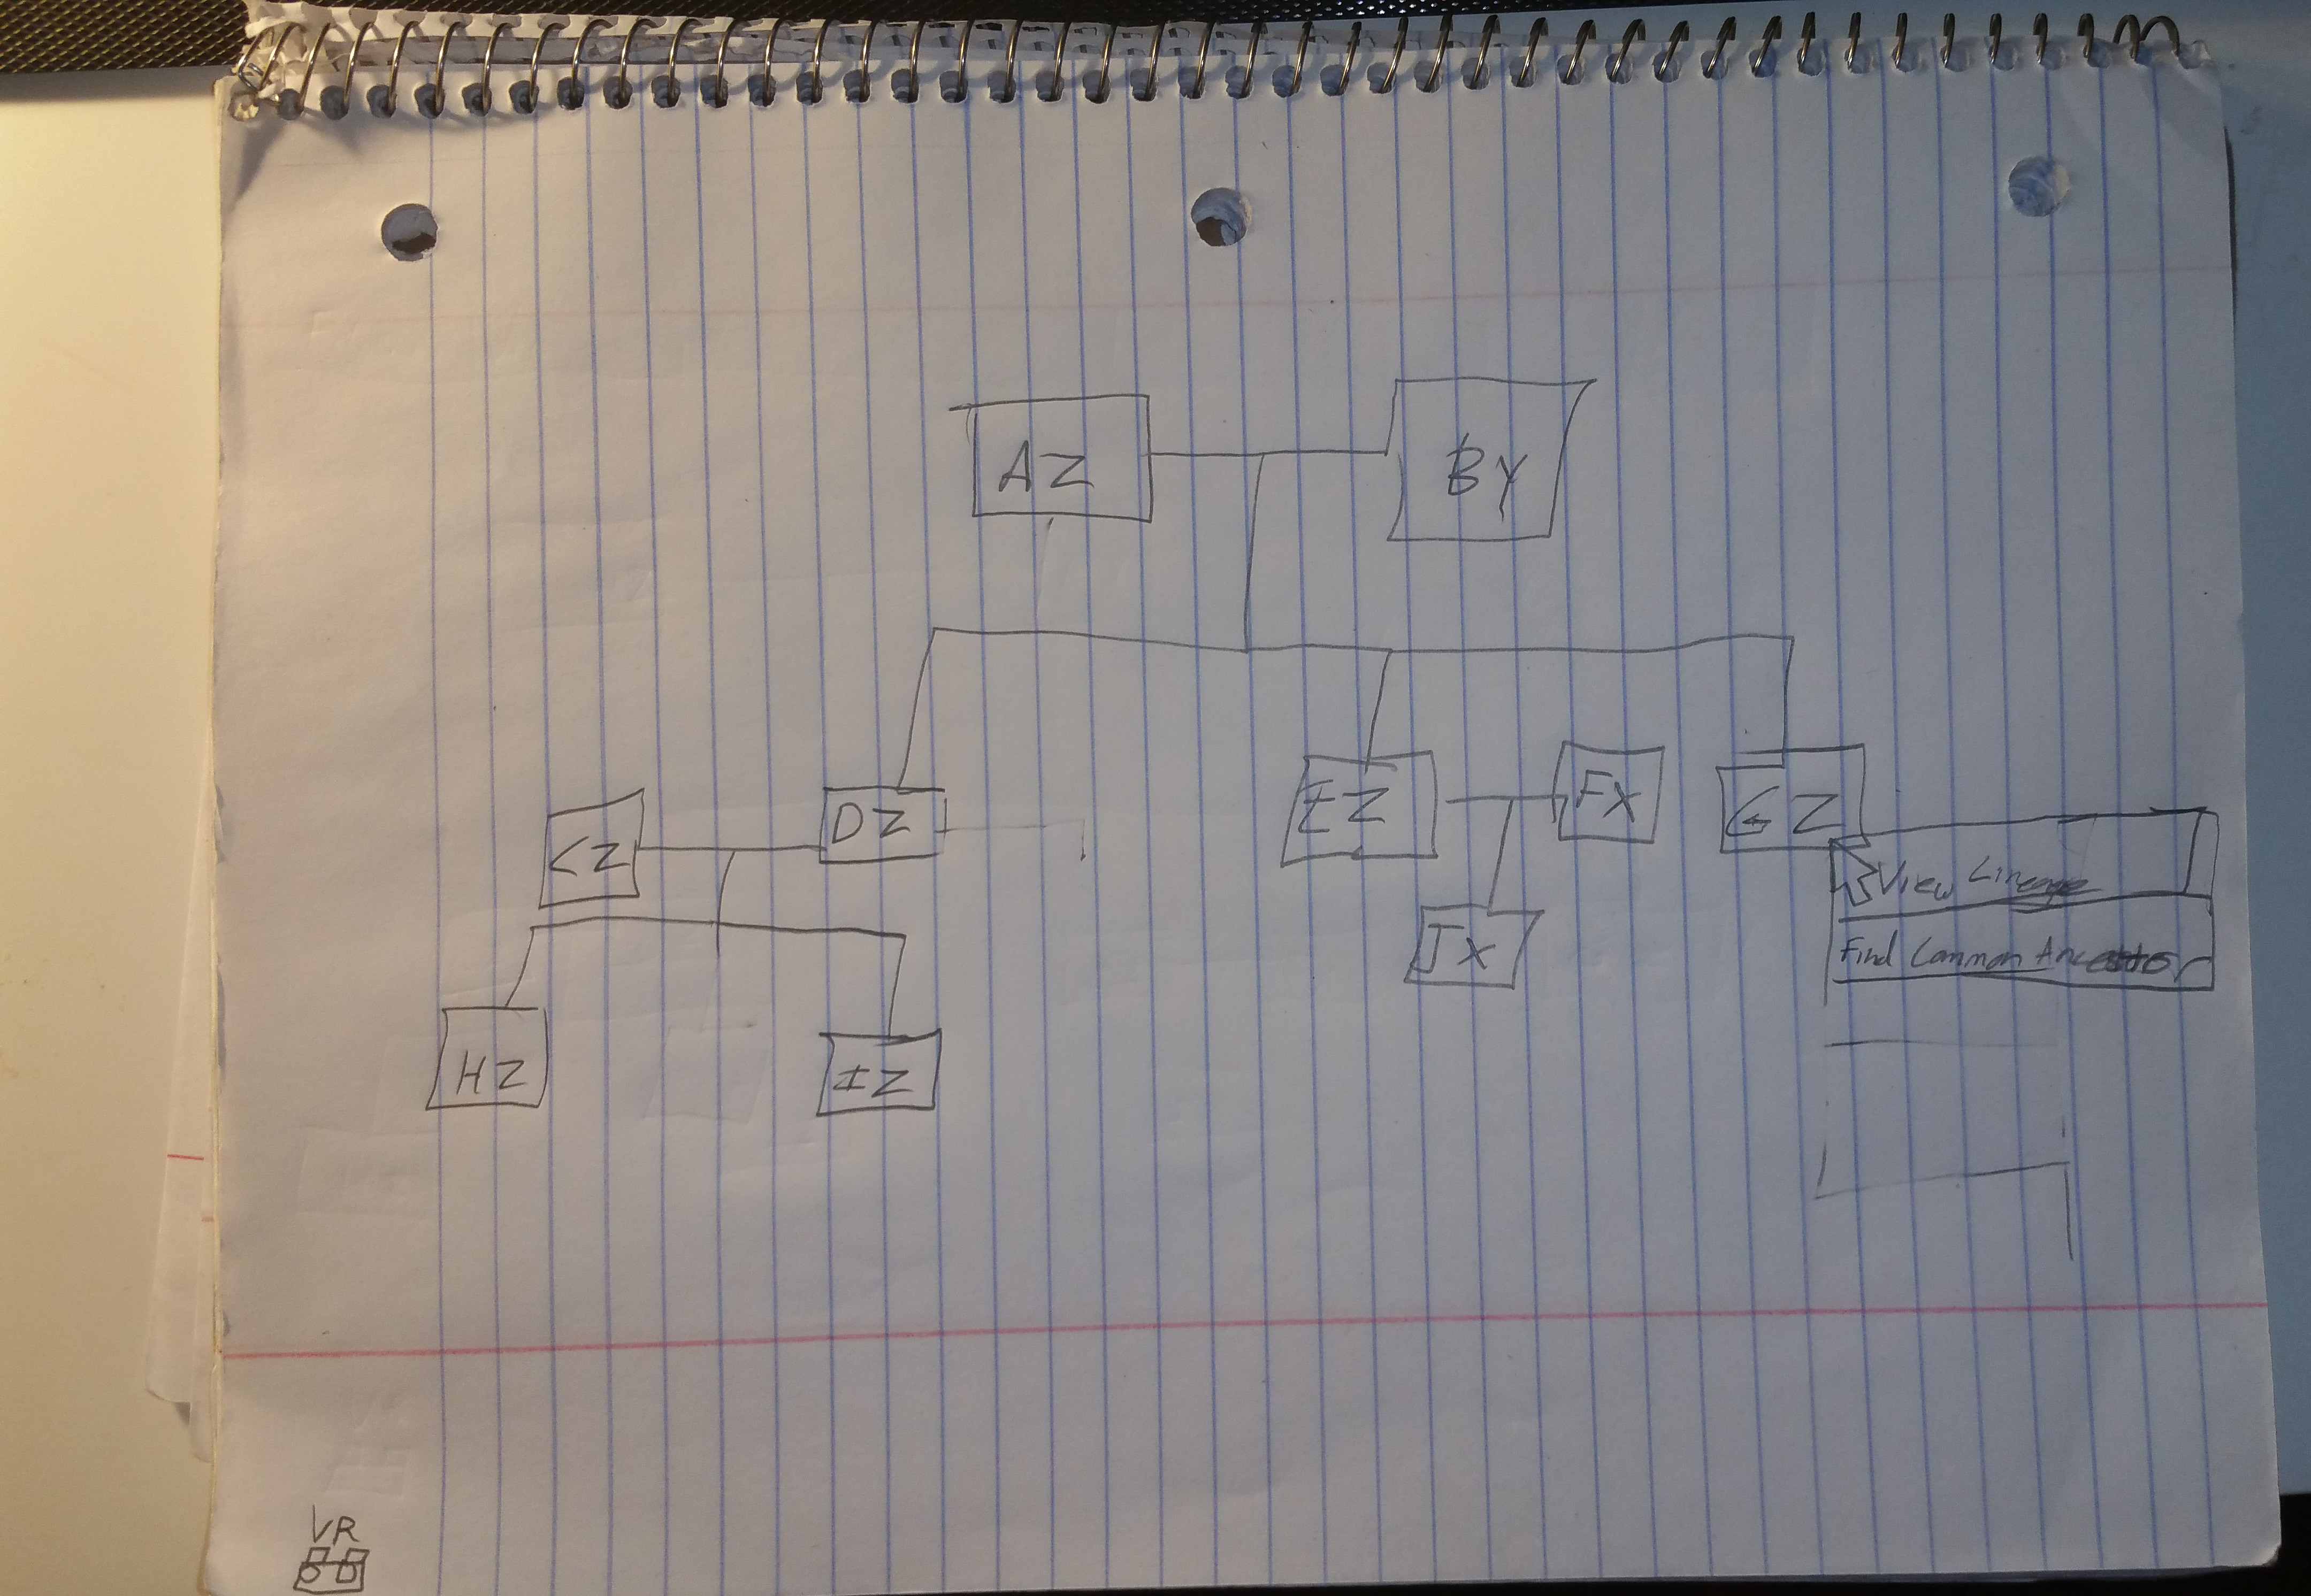 AZ
BY
CZ
DZ
EZ
FX
GZ
View Lineage
JX
Find Common Ancestor
HZ
IZ
VR